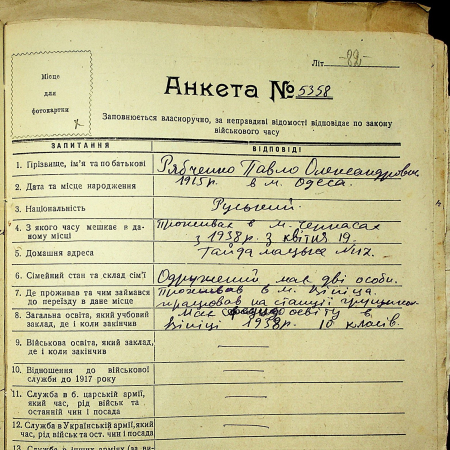 Літ. -82-
Місце
для
фотокартки
Анкета № 5358
Заповнюється власноручно, за неправдиві відомості відповідає по закону
військового часу
ЗАПИТАННЯ ВІДПОВІДІ
1. Прізвище, ім'я та по батькові Рябченко Павло Олександрович
2. Дата та місце народження 1915 р. в м. Одеса.
3. Національність Руський.
4. З якого часу мешкає в да- Проживає в м. Черкасах
ному місці з 1938 р. з квітня 19.
5. Домашня адреса Гайдамацька №12.
6. Сімейний стан та склад сім'ї Одружений має дві особи.
7. Де проживав та чим займався Проживав в м. Вініца.
до переїзду в дане місце працював на станції
8. Загальна освіта, який учбовий Має освіту в
заклад, де і коли закінчив Вініці 1938 р. 10 класів.
9. Військова освіта, який заклад,
де і коли закінчив
10. Відношення до військової
служби до 1917 року
11. Служба в б. царській армії,
який час, рід військ та
останній чин і посада
12. Служба в Українській армії, який
час, рід військ та ост. чин і посада
13. Служба в інших арміях (за ви-